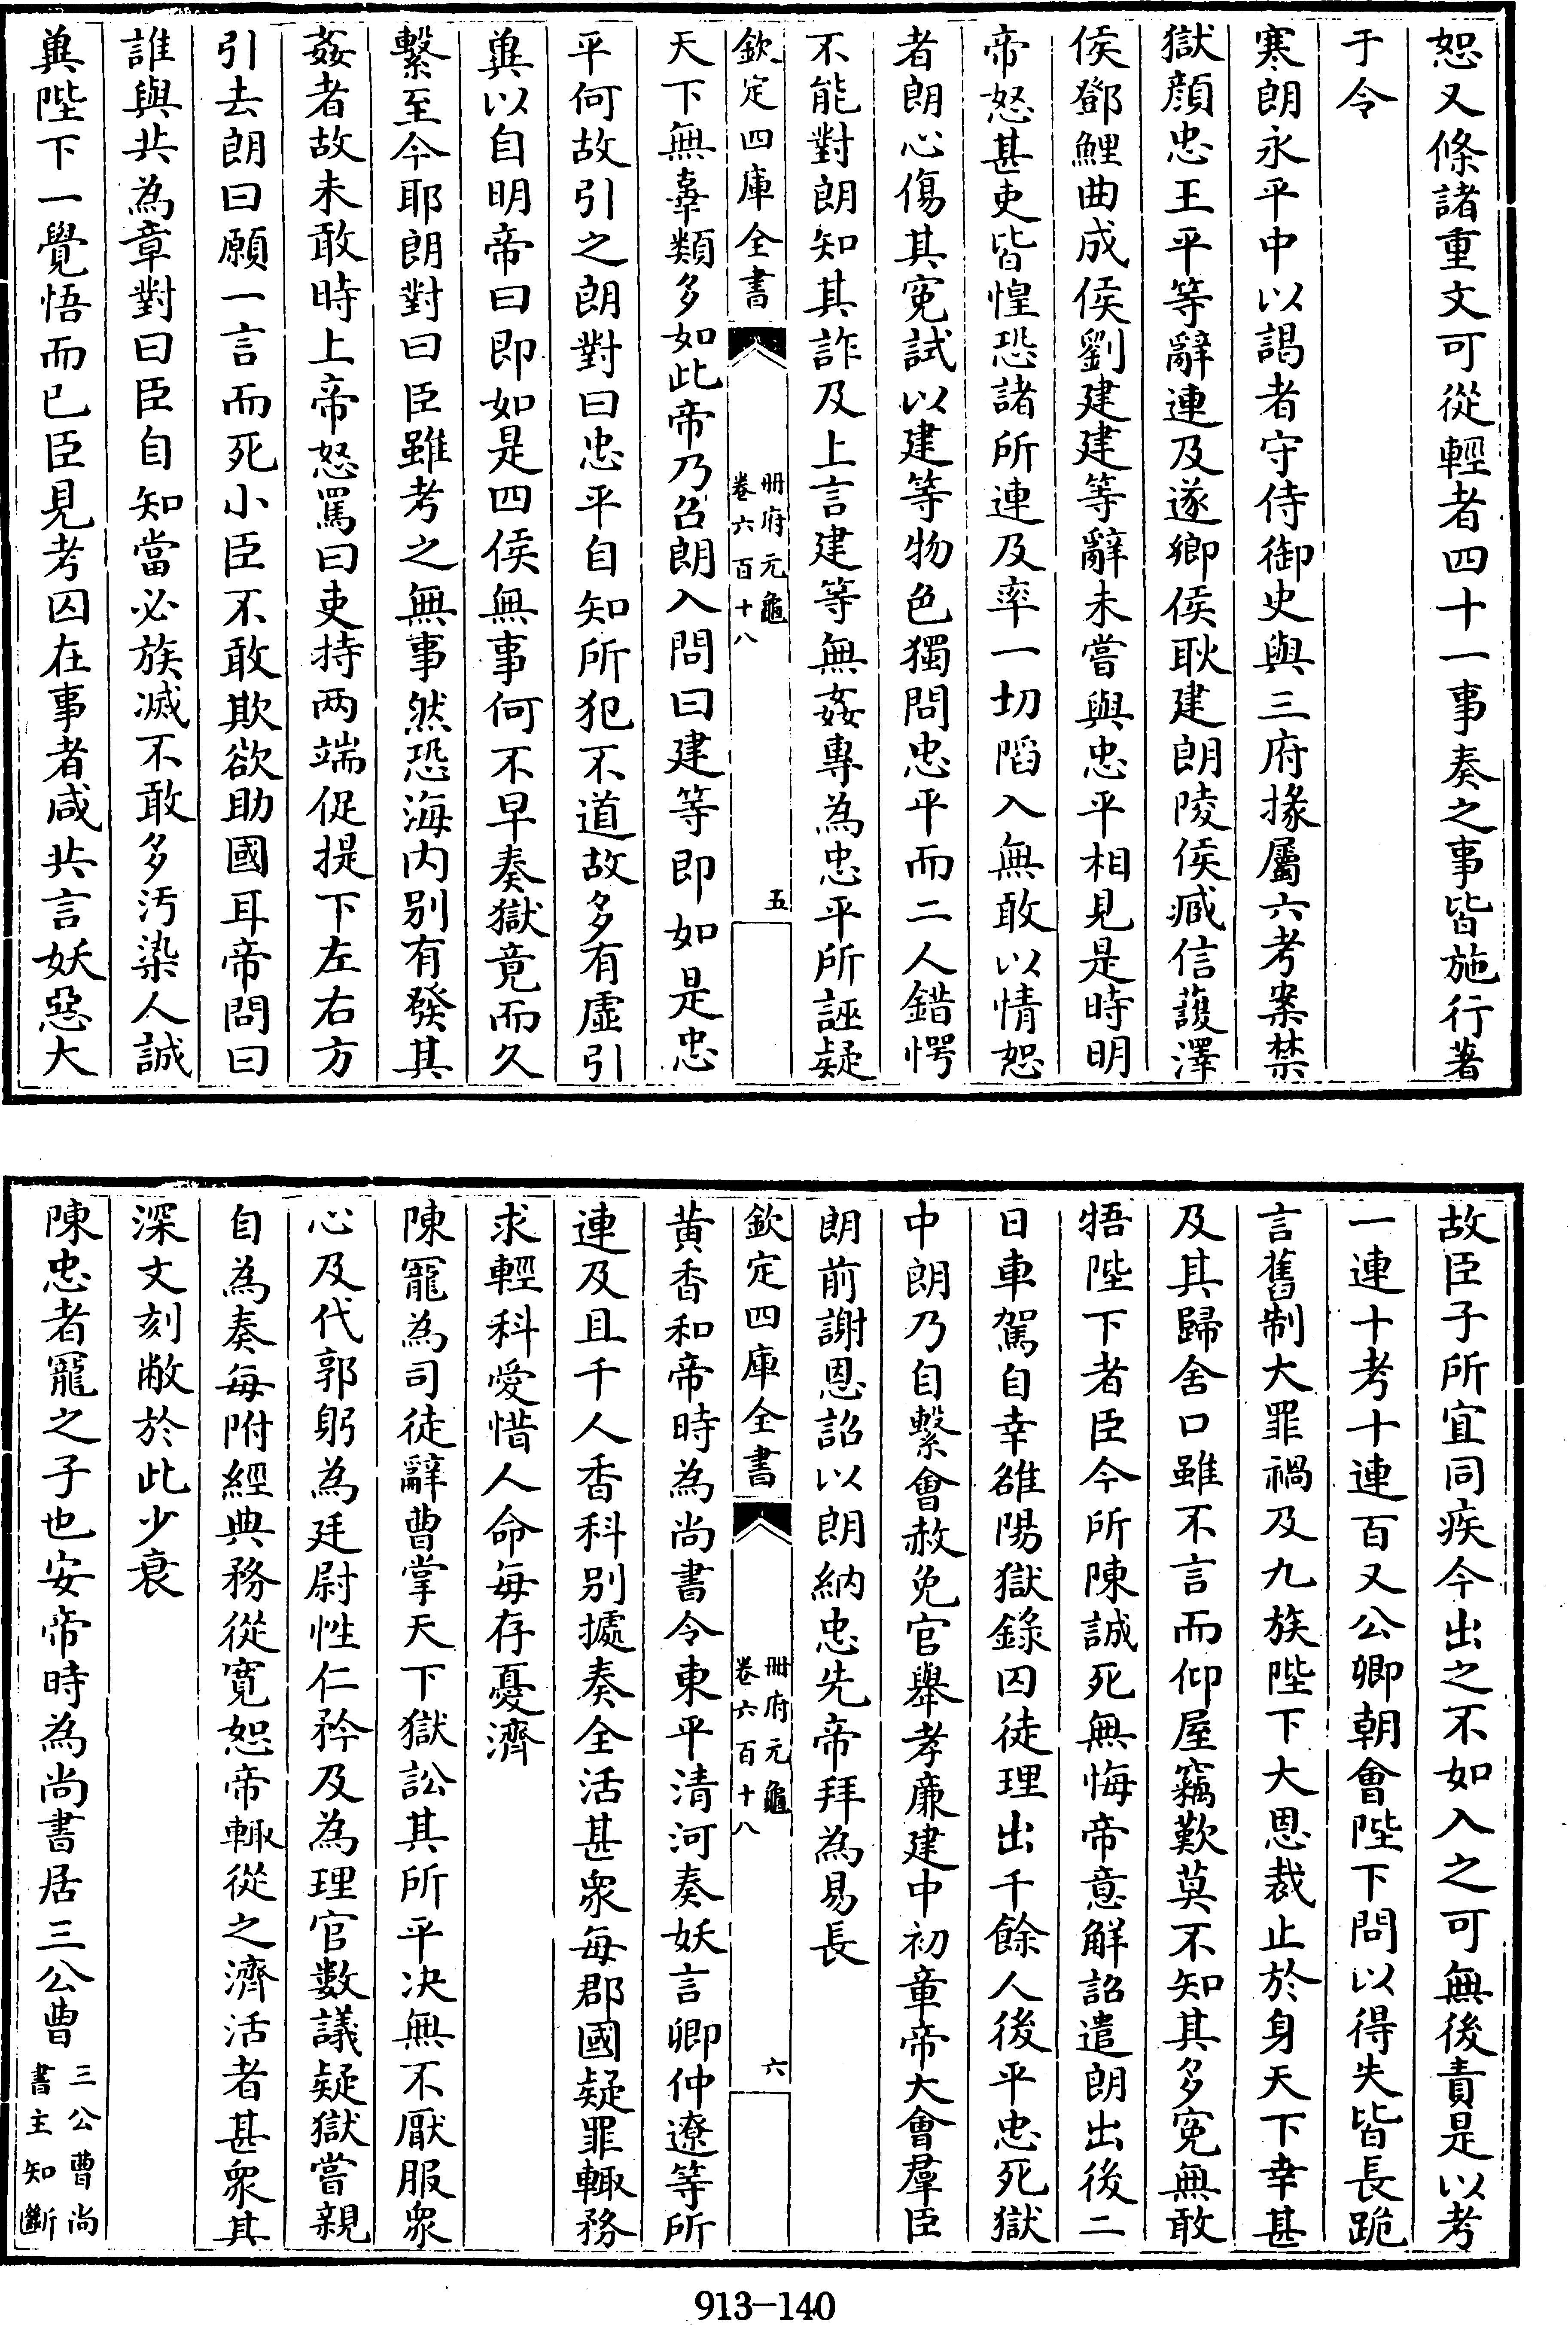 恕又條諸重文可從輕者四十一事奏之事皆施行著
于令
寒朗永平中以謁者守侍御史與三府掾屬六考案禁
獄顔忠王平等辭連及遂鄉侯耿建朗陵侯臧信䕶澤
侯鄧鯉曲成侯劉建建等辭未嘗與忠平相見是時明
帝怒甚吏皆惶恐諸所連及率一切䧟入無敢以情恕
者朗心傷其寃試以建等物色獨問忠平而二人錯愕
不能對朗知其詐及上言建等無姦專為忠平所誣疑
欽定四庫全書
冊府元龜
卷六百十八
五
天下無辜類多如此帝乃召朗入問曰建等即如是忠
平何故引之朗對曰忠平自知所犯不道故多有虛引
冀以自明帝曰即如是四侯無事何不早奏獄竟而久
繫至今耶朗對曰臣雖考之無事然恐海内别有發其
姦者故未敢時上帝怒罵曰吏持两端促提下左右方
引去朗曰願一言而死小臣不敢欺欲助國耳帝問曰
誰與共為章對曰臣自知當必族滅不敢多汚染人誠
冀陛下一覺悟而已臣見考囚在事者咸共言妖惡大
故臣子所宜同疾今出之不如入之可無後責是以考
一連十考十連百又公卿朝會陛下問以得失皆長跪
言舊制大罪禍及九族陛下大恩裁止於身天下幸甚
及其歸舍口雖不言而仰屋竊歎莫不知其多寃無敢
牾陛下者臣今所陳誠死無悔帝意解詔遣朗出後二
日車駕自幸雒陽獄錄囚徒理出千餘人後平忠死獄
中朗乃自繫會赦免官舉孝廉建中初章帝大會羣臣
朗前謝恩詔以朗納忠先帝拜為易長
欽定四庫全書
冊府元龜
卷六百十八
六
黄香和帝時為尚書令東平清河奏妖言卿仲遼等所
連及且千人香科别據奏全活甚衆每郡國疑罪輙務
求輕科愛惜人命每存憂濟
陳寵為司徒辭曹掌天下獄訟其所平决無不厭服衆
心及代郭躬為廷尉性仁矜及為理官數議疑獄嘗親
自為奏每附經典務從寛恕帝輙從之濟活者甚衆其
深文刻敝於此少衰
陳忠者寵之子也安帝時為尚書居三公曹
三公曹尚
書主知斷
913-140